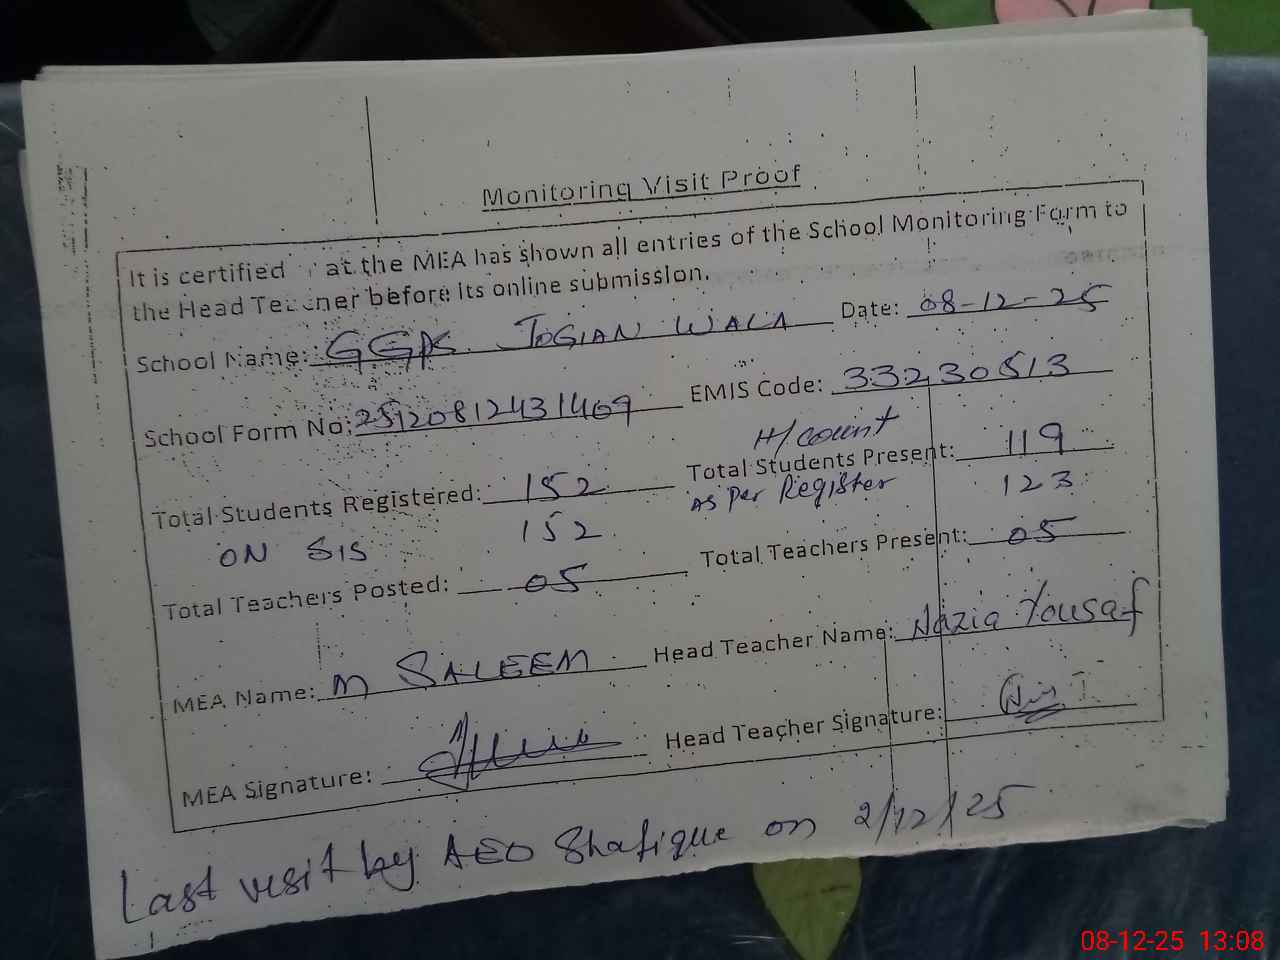 Monitoring Visit Proof
It is certified at the MEA has shown all entries of the School Monitoring Form to
the Head Teacher before its online submission.
School Name: GGPS JOGIAN WALA Date: 08-12-25
School Form No: 25120812431469 EMIS Code: 33230513
H/count
Total Students Registered: 152 Total Students Present: 119
ON SIS 152 As Per Register 123
Total Teachers Posted: 05 Total Teachers Present: 05
MEA Name: M SALEEM Head Teacher Name: Nazia Yousaf
MEA Signature: Head Teacher Signature:
Last visit by AEO Shafique on 2/12/25
08-12-25 13:08